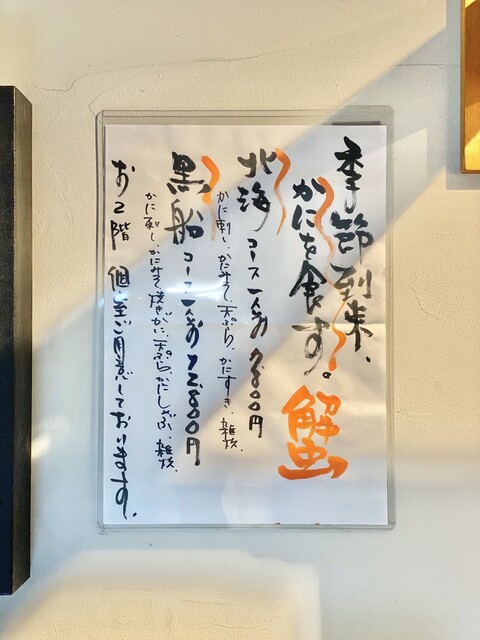 季節到来、
かにを食す。
蟹
北海 コース一人前 9,800円
かに刺し、かにみそ、天ぷら、かにすき、雑炊、
黒船 コース一人前 12,800円
かに刺し、かにみそ、焼きがに、天ぷら、かにしゃぶ、雑炊、
お2階 個室ご用意しております。